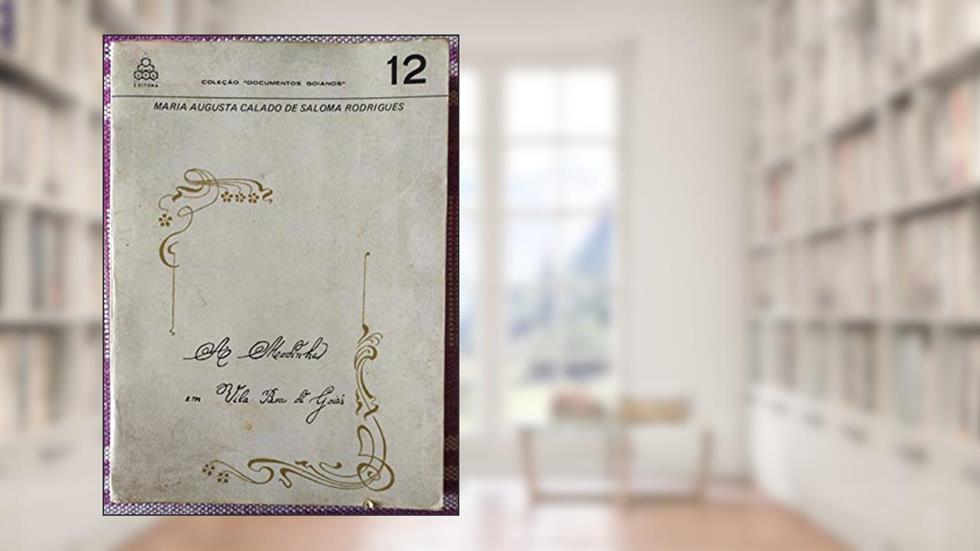 EDITORA
COLEÇÃO "DOCUMENTOS GOIANOS"
12
MARIA AUGUSTA CALADO DE SALOMA RODRIGUES
A Modinha
em Vila Boa de Goiás